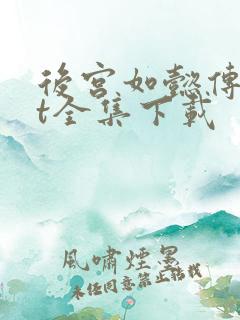 後宮如懿傳
t全集下載
風嘯煙墨
未經同意禁止轉載